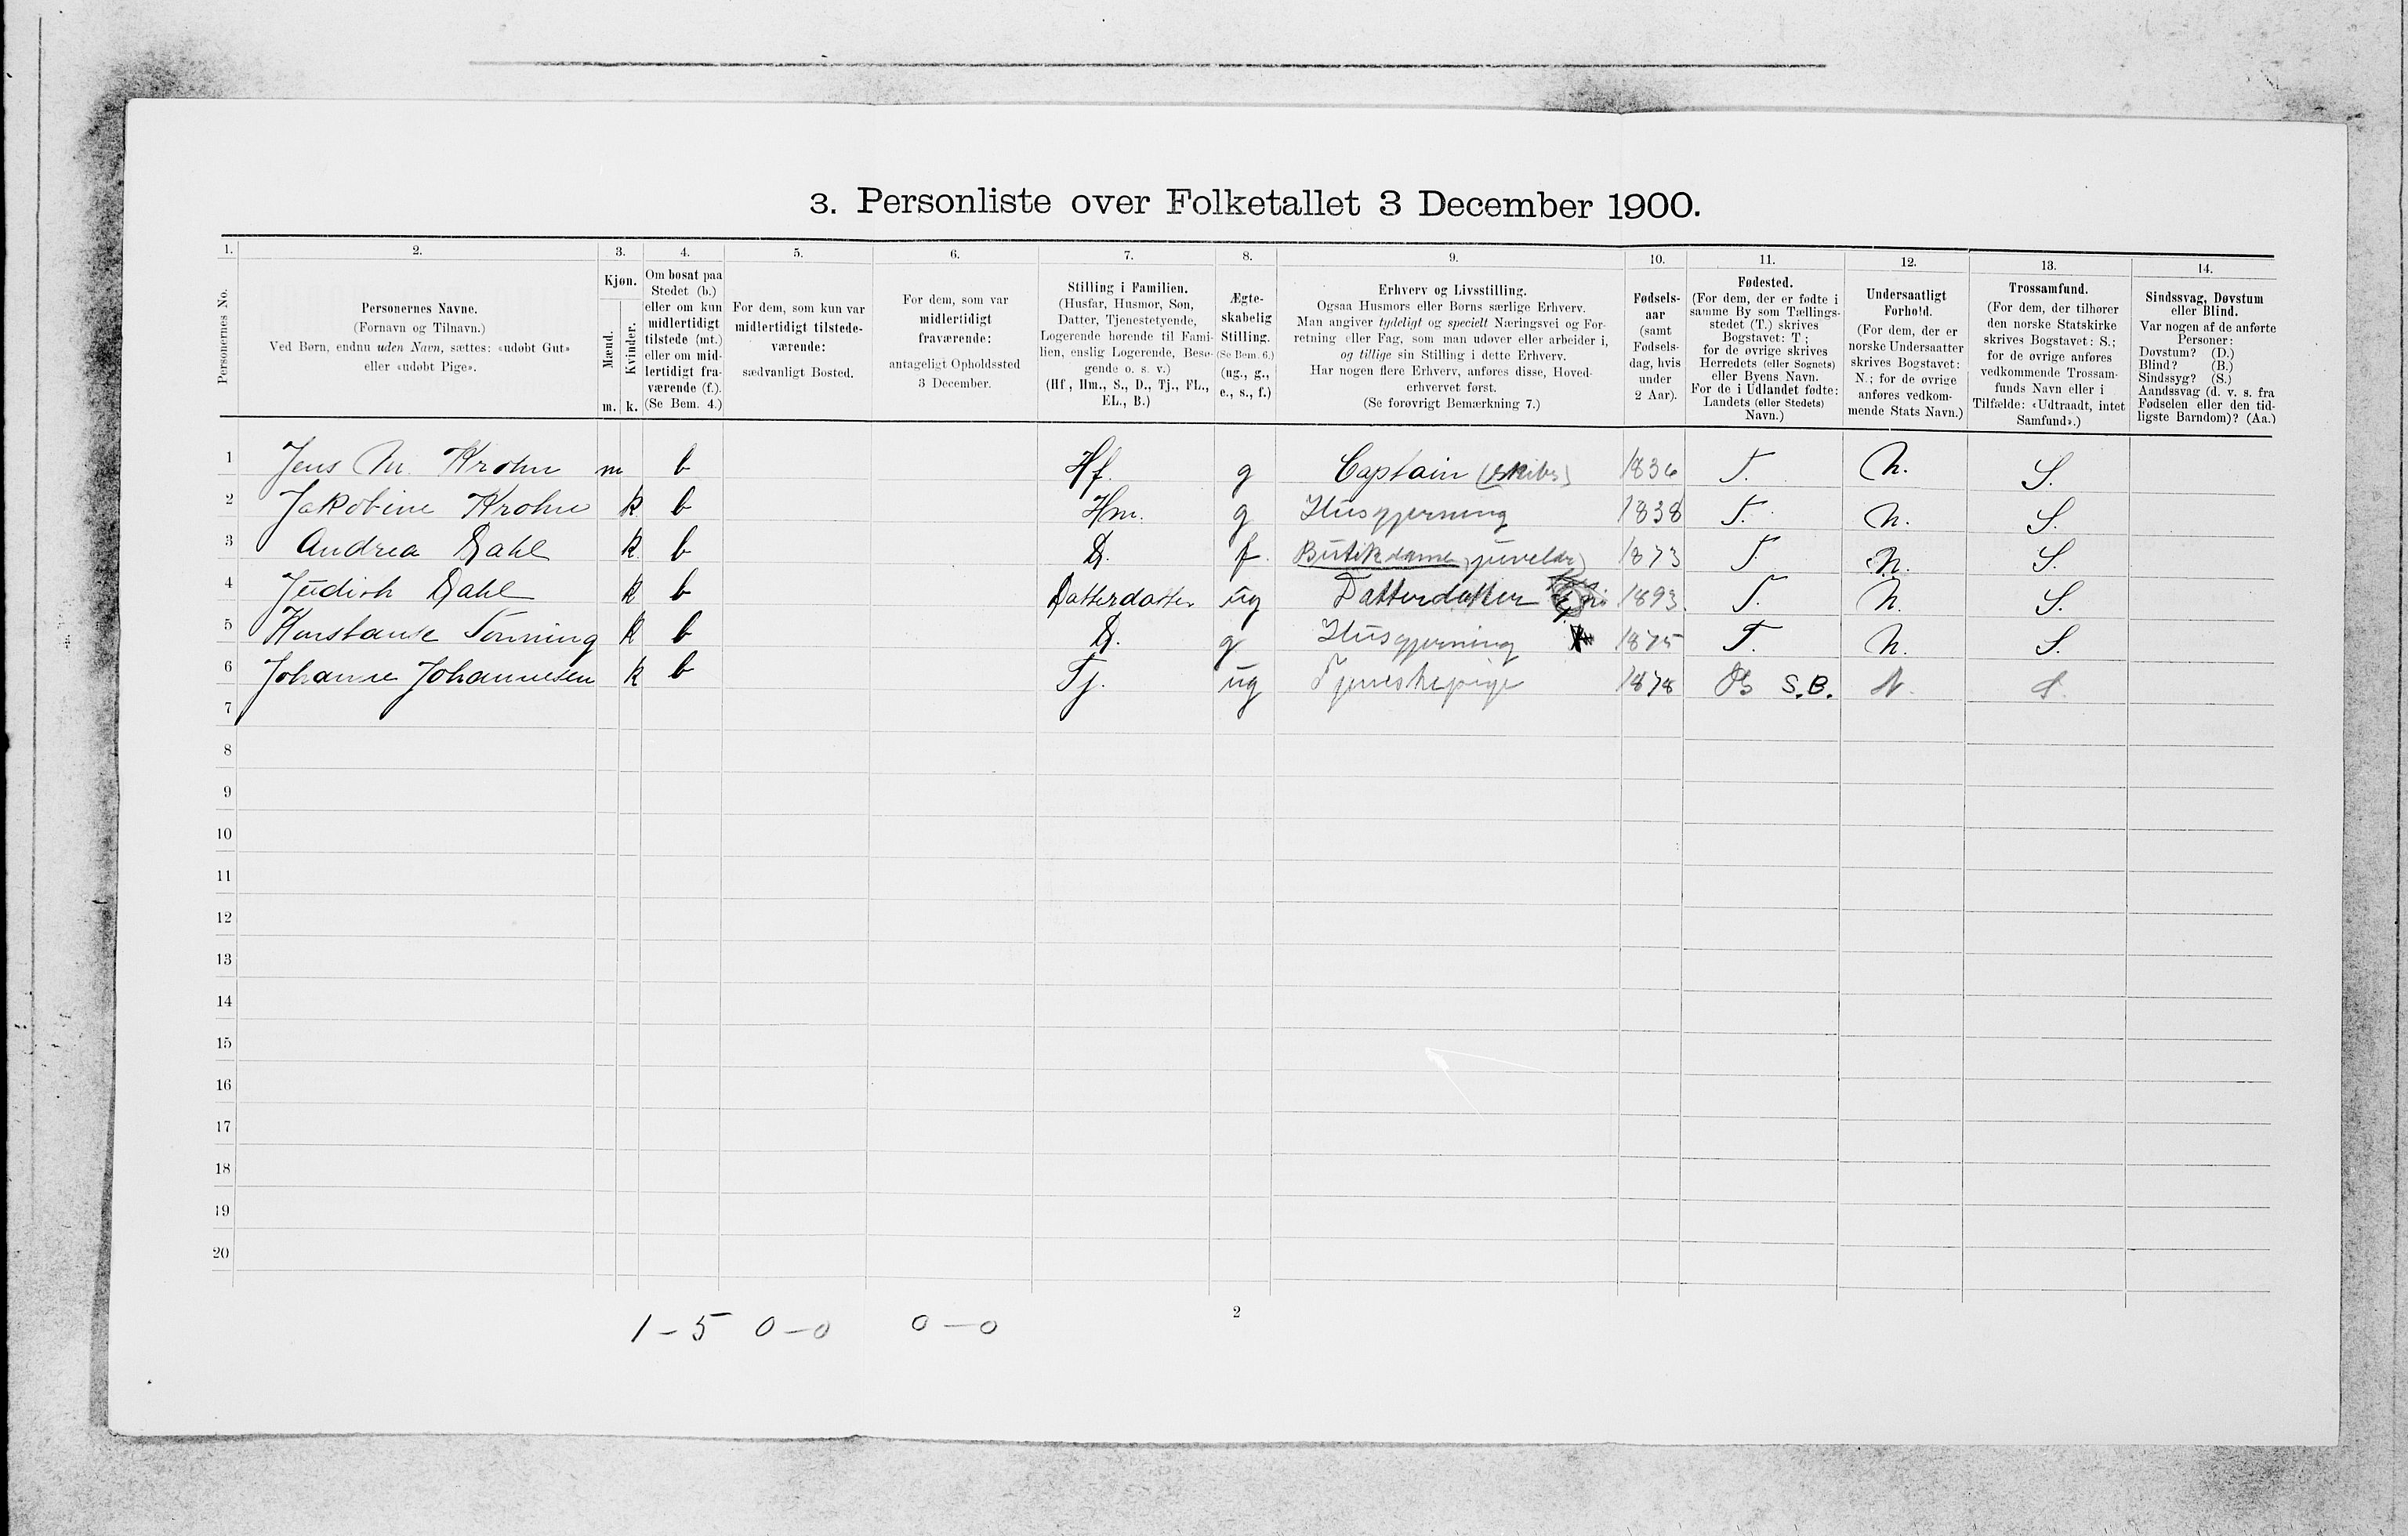 3. Personliste over Folketallet 3 December 1900.
1. 2. 3. 4. 5. 6. 7. 8. 9. 10. 11. 12. 13. 14.
Personernes No.
Personernes Navne.
(Fornavn og Tilnavn.)
Ved Børn, endnu uden Navn, sættes: «udøbt Gut»
eller «udøbt Pige».
Kjøn.
Mænd.
Kvinder.
m. k.
Om bosat paa
Stedet (b.)
eller om kun
midlertidigt
tilstede (mt.)
eller om mid-
lertidigt fra-
værende (f.).
(Se Bem. 4.)
For dem, som kun var
midlertidigt tilstede-
værende:
sædvanligt Bosted.
For dem, som var
midlertidigt
fraværende:
antageligt Opholdssted
3 December.
Stilling i Familien.
(Husfar, Husmor, Søn,
Datter, Tjenestetyende,
Logerende hørende til Fami-
lien, enslig Logerende, Besø-
gende o. s. v.)
(Hf, Hm., S., D., Tj., FL.,
EL., B.)
Ægte-
skabelig
Stilling.
(Se Bem. 6.)
(ug., g.,
e., s., f.)
Erhverv og Livsstilling.
Ogsaa Husmors eller Børns særlige Erhverv.
Man angiver tydeligt og specielt Næringsvei og For-
retning eller Fag, som man udøver eller arbeider i,
og tillige sin Stilling i dette Erhverv.
Har nogen flere Erhverv, anføres disse, Hoved-
erhvervet først.
(Se forøvrigt Bemærkning 7.)
Fødsels-
aar
(samt
Fødsels-
dag, hvis
under
2 Aar).
Fødested.
(For dem, der er fødte i
samme By som Tællings-
stedet (T.) skrives
Bogstavet: T;
for de øvrige skrives
Herredets (eller Sognets)
eller Byens Navn.
For de i Udlandet fødte:
Landets (eller Stedets)
Navn.)
Undersaatligt
Forhold.
(For dem, der er
norske Undersaatter
skrives Bogstavet:
N.; for de øvrige
anføres vedkom-
mende Stats Navn.)
Trossamfund.
(For dem, der tilhører
den norske Statskirke
skrives Bogstavet: S.;
for de øvrige anføres
vedkommende Trossam-
funds Navn eller i
Tilfælde: «Udtraadt, intet
Samfund».)
Sindssvag, Døvstum
eller Blind.
Var nogen af de anførte
Personer:
Døvstum? (D.)
Blind? (B.)
Sindssyg? (S.)
Aandssvag (d. v. s. fra
Fødselen eller den tid-
ligste Barndom)? (Aa.)
1 Jens M. Krohn m b Hf. g Captain (skibs) 1836 T. N. S.
2 Jakobine Krohn k b Hm. g Husgjerning 1838 T. N. S.
3 Andrea Dahl k b D. f. Butikdame, juveler) 1873 T N. S.
4 Judith Dahl k b Datterdatter ug Datterdatter 1893. T. N. S.
5 Konstanse Tønning k b D. g Husgjerning 1875 T. N. S.
6 Johanne Johannesen k b Tj. ug Tjenestepige 1878 S.B. N. S.
7
8
9
10
11
12
13
14
15
16
17
18
19
20
1 – 5 0 – 0 0 – 0
2